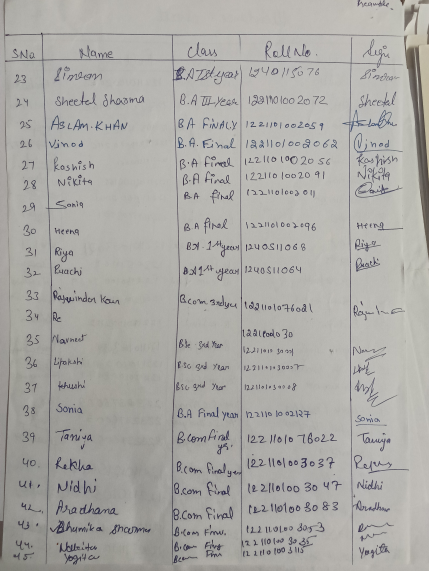 SNo Name Class Roll No. Sign
23 Simran B.A Ist year 1240115076 Simran
24 Sheetal Sharma B.A III year 1221101002072 Sheetal
25 ASLAM KHAN BA FINALY 1221101002059
26 Vinod B.A. Final 1221101002062 Vinod
27 Kashish B.A final 1221101002056 Kashish
28 Nikita B.A final 1221101002091 Nikita
29 Sonia BA final 1221101002011
30 Heena B.A final 1221101002096 Heena
31 Riya BA. 1st year 1240511068 Riya
32 Prachi BA 1st year 1240511064 Prachi
33 Rajwinder Kaur B.com 3rd year 1221101076021
34 Re
35 Navneet BSc 3rd Year
36 BSC 3rd Year
37 Khushi BSC 3rd Year
38 Sonia B.A Final year 1221101002127 Sonia
39 Taniya B.com Final yr. 1221101078022 Taniya
40. Rekha B.com final year 1221101003037
41. Nidhi B.com final 1221101003047 Nidhi
42. Aradhana B.com final 1221101003083 Aradhana
43. Bhumika Sharma B.com Final 1221101003053
44. B.com
45 Yogita Yogita